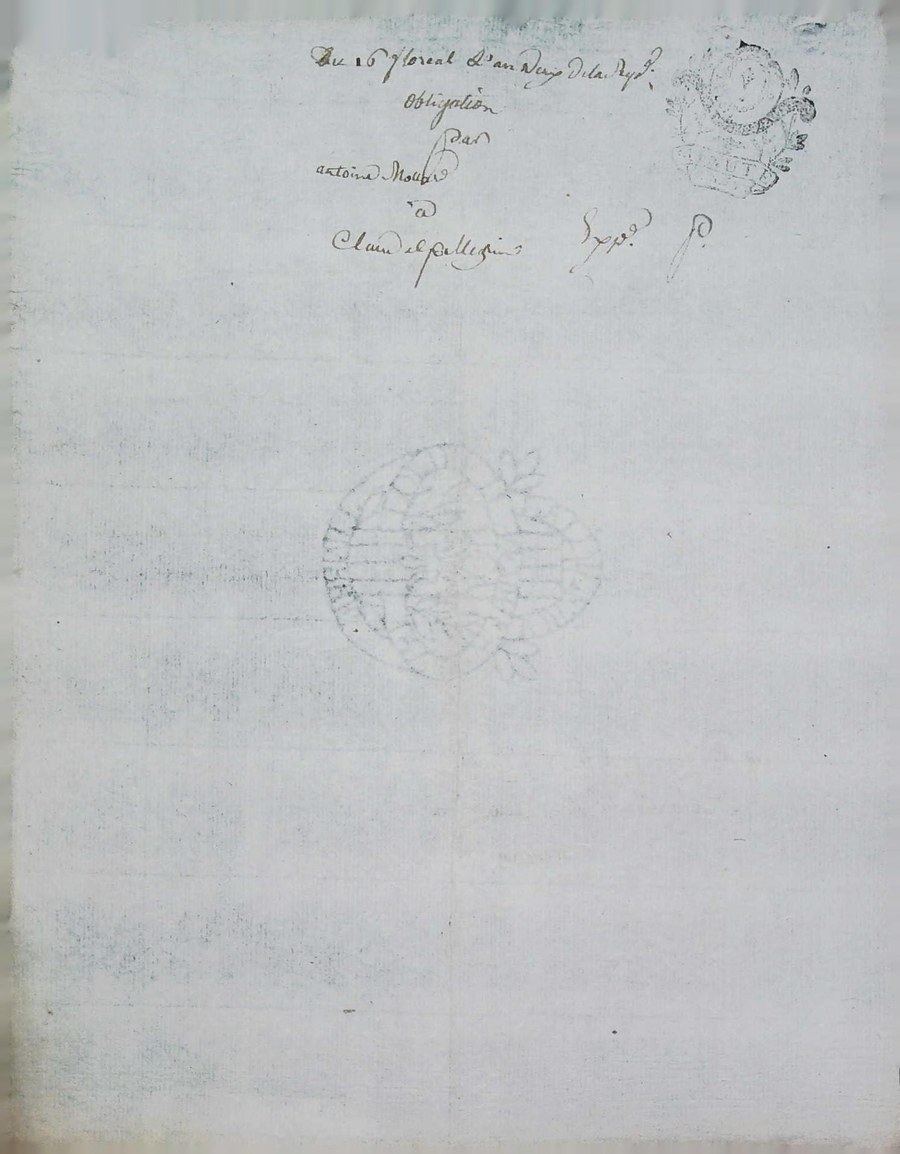 Du 16 floreal L'an deux de la Rep.e
obligation
par
antoine
à
Claude pellegrin Expp.e